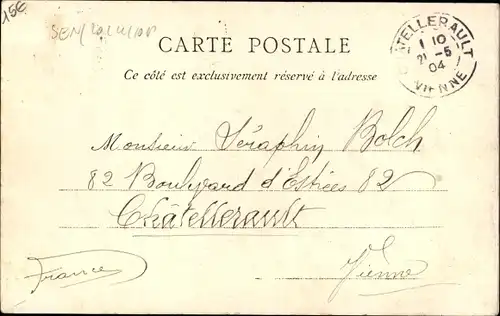 15€
CARTE POSTALE
Ce côté est exclusivement réservé à l'adresse
CHATELLERAULT
1 10
21 -5
04
VIENNE
Monsieur Séraphin Bolch
82 Boulevard d'Estrées 82
Châtellerault
Vienne
France